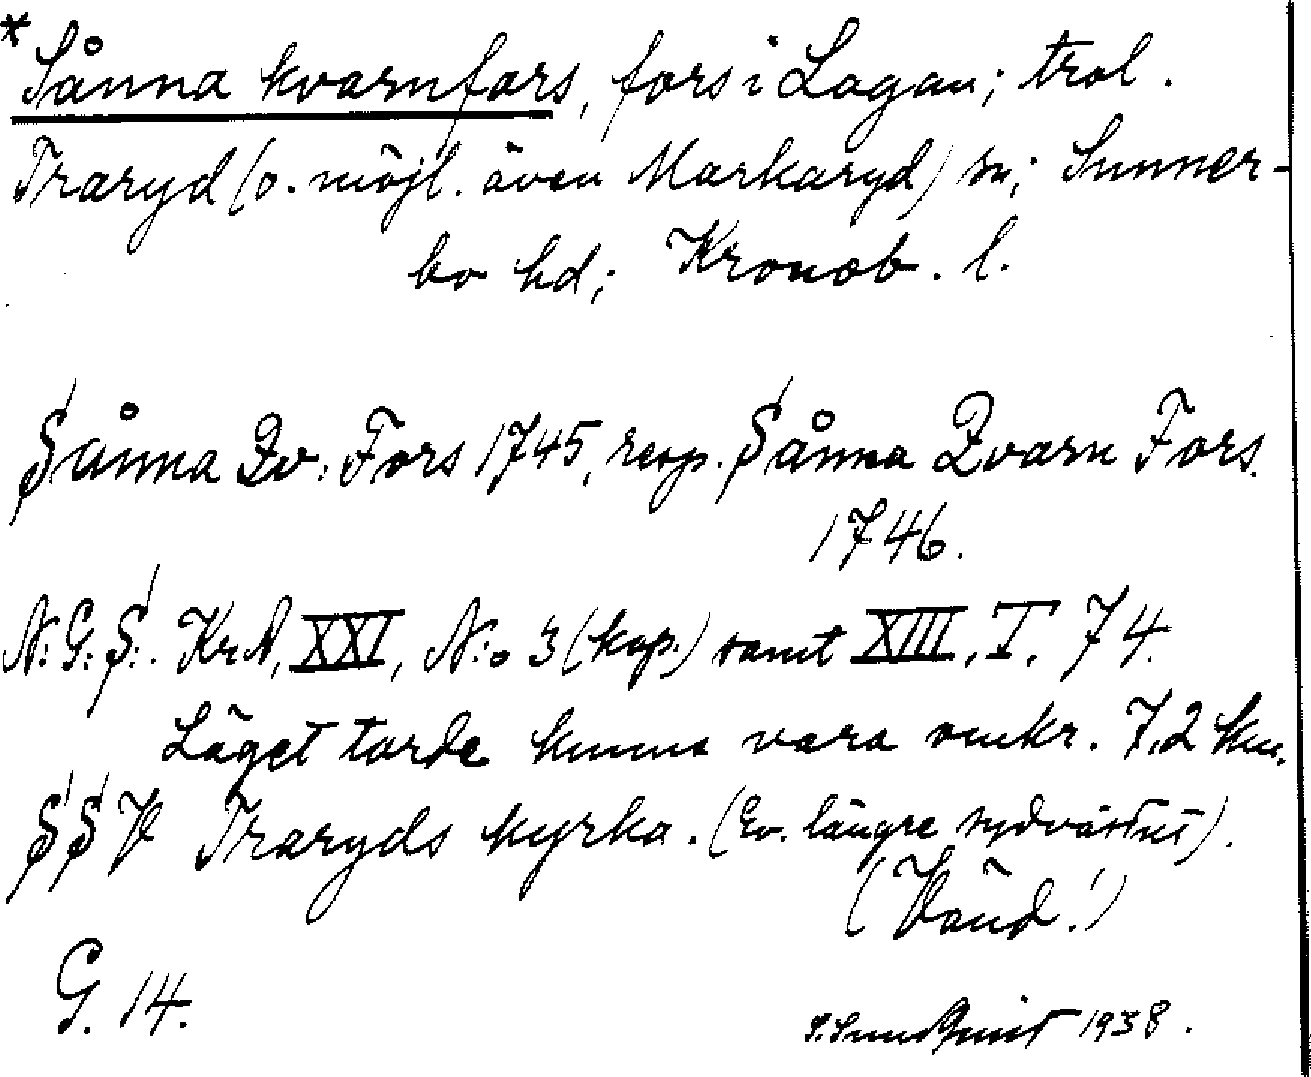 * Sånna kvarnfors, fors i Lagan; trol.
Traryd (o. möjl. även Markaryd) sn; Sunner-
bo hd; Kronob. l.
Sånna Qv: Fors 1745, resp. Sånna Qvarn Fors
1746.
N: G: S:. Kr. A, XXI, N:o 3 (kop.) samt XIII, T. 74.
Läget torde kunna vara omkr. 7,2 km.
SSV Traryds kyrka. (Ev. längre sydvästut).
(Vänd!)
G. 14.
S. Sundquist 1938.